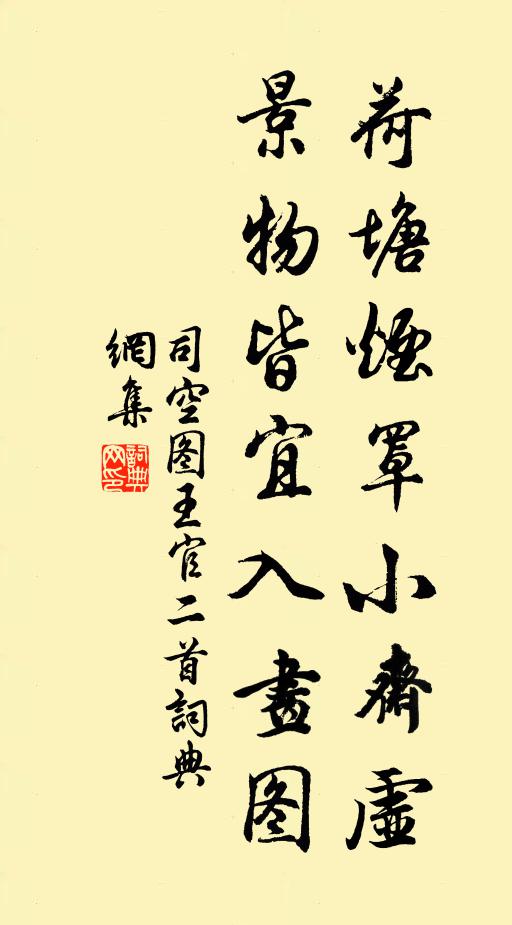 荷塘煙罩小齋虛
景物皆宜入畫图
司空图王官二首詞典
網集
詞典
网印